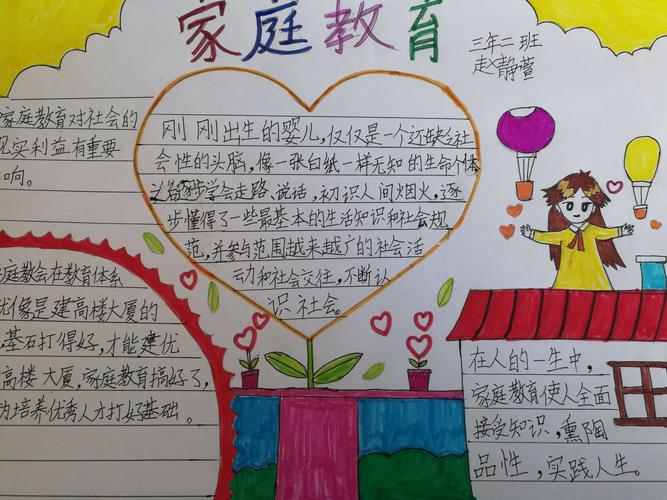 家庭教育
三年二班
赵静萱
家庭教育对社会的
现实利益有重要
响。
刚刚出生的婴儿,仅仅是一个还缺乏社
会性的头脑,像一张白纸一样无知的生命个体
逐步学会走路、说话,初识人间烟火,逐
步懂得了一些最基本的生活知识和社会规
范,并参与范围越来越广的社会活
动和社会交往,不断认
识社会。
庭教会在教育体系
就像是建高楼大厦的
基石打得好,才能建优
高楼大厦,家庭教育搞好了,
为培养优秀人才打好基础。
在人的一生中,
家庭教育使人全面
接受知识,熏陶
品性,实践人生。